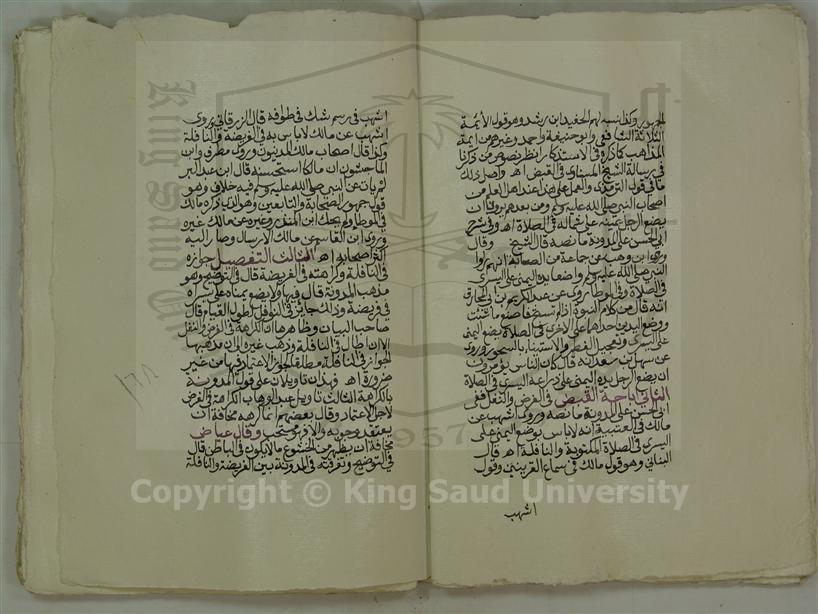 الجمهور وكذا نسبه لهم الحفيد ابن رشد وهو قول الأيمة
الثلاثة الشافعي وابو حنيفة واحمد وغيرهم من ايمة
المذاهب كما ذكره في الاستذكار انظر نصوص من ذكرنا
في رسالة الشيخ المسناوي في القبض اه واصل ذلك
ما في قول الترمذي والعمل على هذا عند اهل العلم من
اصحاب النبي صلى الله عليه وسلم ومن بعدهم يرون ان
يضع الرجل يمينه على شماله في الصلاة اه وفي شرح
ابي الحسن على المدونة ما نصه قال الشيخ وقال
روى ابن وهب عن جماعة من الصحابة انهم راوا
النبي صلى الله عليه وسلم واضعا يده اليمنى على اليسرى
في الصلاة وفي الموطا روى عن عبد الكريم بن ابي المخارق
انه قال من كلام النبوة اذا لم تستح فاصنع ما شئت
ووضع اليدين احداهما على الاخرى في الصلاة يضع اليمنى
على اليسرى وتعجيل الفطر والاستيناء بالسحور وروى
عن سهل بن سعد انه قال كان الناس يؤمرون
ان يضع الرجل يده اليمنى على ذراعه اليسرى في الصلاة
الثاني اباحة القبض في الفرض والنفل ففي
ابي الحسن على المدونة ما نصه وروى اشهب عن
مالك في العتبية انه لا باس بوضع اليمنى على
اليسرى في الصلاة المكتوبة والنافلة اه قال
البناني وهو قول مالك في سماع القرينين وقول
اشهب
اشهب في رسم شك في طوافه قال الزرقاني وروى
اشهب عن مالك لا باس به في الفريضة والنافلة
وكذا قال اصحاب مالك المدنيون وروى مطرف وابن
الماجشون ان مالكا استحسنه قال ابن عبد البر
لم يات عن النبي صلى الله عليه وسلم فيه خلاف وهو
قول جمهور الصحابة والتابعين وهو الذي ذكره مالك
في الموطا ولم يحك ابن المنذر وغيره عن مالك غيره
وروى ابن القاسم عن مالك الارسال وصار اليه
اكثر اصحابه اه الثالث التفصيل جوازه
في النافلة وكراهته في الفريضة قال في التوضيح وهو
مذهب المدونة قال فيها ولا يضع يمناه على يسراه
في فريضة وذلك جايز في النوافل لطول القيام قال
صاحب البيان وظاهرها ان الكراهة في الفرض والنفل
الا ان اطال في النافلة وذهب غيره الى ان مذهبها
الجواز في النافلة مطلقا لجواز الاعتماد فيها من غير
ضرورة اه فهذان تاويلان على قول المدونة
بالكراهة الثالث تاويل عبد الوهاب الكراهة في الفرض
لاجل الاعتماد وقال بعضهم انما كرهه مخافة ان
يعتقد وجوبه والا فهو مستحب وقال عياض
مخافة ان يظهر من الخشوع ما لا يكون في الباطن قال
في التوضيح وتفرقته في المدونة بين الفريضة والنافلة
Copyright © King Saud University
1957